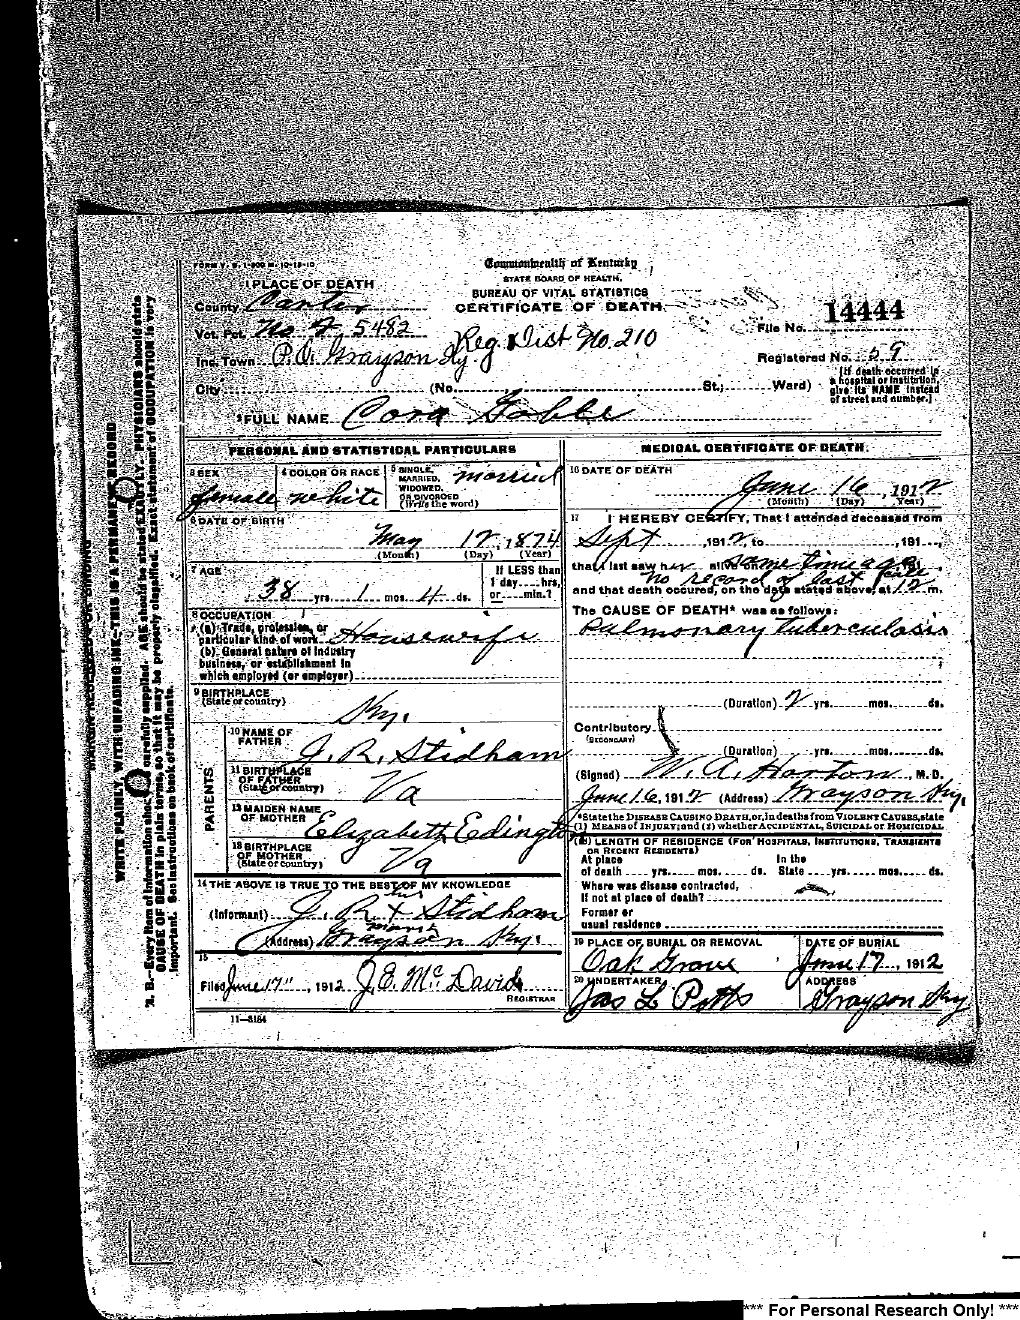 FORM V. S. 1-500 M-10-13-10
Commonwealth of Kentucky
STATE BOARD OF HEALTH.
BUREAU OF VITAL STATISTICS
CERTIFICATE OF DEATH
1 PLACE OF DEATH
County Carter
Vot. Pct. No 4 5482
Reg. Dist No. 210
File No. 14444
Inc. Town P.O. Grayson Ky
Registered No. 59
City (No. St.; Ward)
[If death occurred in a hospital or institution, give its NAME instead of street and number.]
2 FULL NAME Cora
PERSONAL AND STATISTICAL PARTICULARS
3 SEX female
4 COLOR OR RACE white
5 SINGLE, MARRIED, WIDOWED, OR DIVORCED (Write the word) married
6 DATE OF BIRTH
May 12, 1874
(Month) (Day) (Year)
7 AGE
38 yrs. 1 mos. 4 ds.
If LESS than 1 day....hrs. or....min.?
8 OCCUPATION
(a) Trade, profession, or particular kind of work Housewife
(b) General nature of industry business, or establishment in which employed (or employer)
9 BIRTHPLACE (State or country)
Ky.
PARENTS
10 NAME OF FATHER J. R. Stidham
11 BIRTHPLACE OF FATHER (State or country) Va
12 MAIDEN NAME OF MOTHER Elizabeth Edington
13 BIRTHPLACE OF MOTHER (State or country) Va
14 THE ABOVE IS TRUE TO THE BEST OF MY KNOWLEDGE
his
(Informant) J. R. X Stidham
mark
(Address) Grayson Ky.
15
Filed June 17", 1912 J. E. McDavid
REGISTRAR
11-3184
MEDICAL CERTIFICATE OF DEATH
16 DATE OF DEATH
June 16, 1912
(Month) (Day) Year)
17 I HEREBY CERTIFY, That I attended deceased from
Sept, 1912, to, 191
that I last saw her alive on some time ago
no record of last
and that death occured, on the date stated above, at 12 m.
The CAUSE OF DEATH* was as follows:
Pulmonary Tuberculosis
(Duration) 2 yrs. mos. ds.
Contributory
(SECONDARY)
(Duration) yrs. mos. ds.
(Signed) W. A. Horton, M. D.
June 16, 1912 (Address) Grayson Ky.
*State the DISEASE CAUSING DEATH, or, in deaths from VIOLENT CAUSES, state (1) MEANS OF INJURY; and (2) whether ACCIDENTAL, SUICIDAL or HOMICIDAL
(18) LENGTH OF RESIDENCE (FOR HOSPITALS, INSTITUTIONS, TRANSIENTS OR RECENT RESIDENTS)
At place of death yrs. mos. ds. In the State yrs. mos. ds.
Where was disease contracted, if not at place of death?
Former or usual residence
19 PLACE OF BURIAL OR REMOVAL
Oak Grove
DATE OF BURIAL
June 17, 1912
20 UNDERTAKER
Jas L Potts
ADDRESS
Grayson Ky
MARGIN RESERVED FOR BINDING
WRITE PLAINLY, WITH UNFADING INK—THIS IS A PERMANENT RECORD
N. B.—Every item of information should be carefully supplied. AGE should be stated EXACTLY. PHYSICIANS should state
CAUSE OF DEATH in plain terms, so that it may be properly classified. Exact statement of OCCUPATION is very
important. See instructions on back of certificate.
*** For Personal Research Only! ***